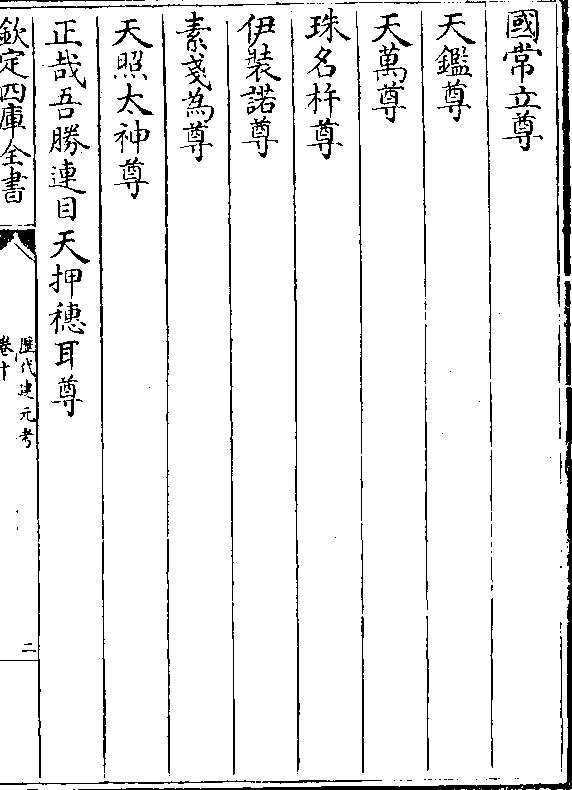 國常立尊
天鑑尊
天萬尊
珠名杵尊
伊裝諾尊
素戔為尊
天照太神尊
正哉吾勝連目天押穗耳尊
欽定四庫全書
歷代建元考
卷十
二